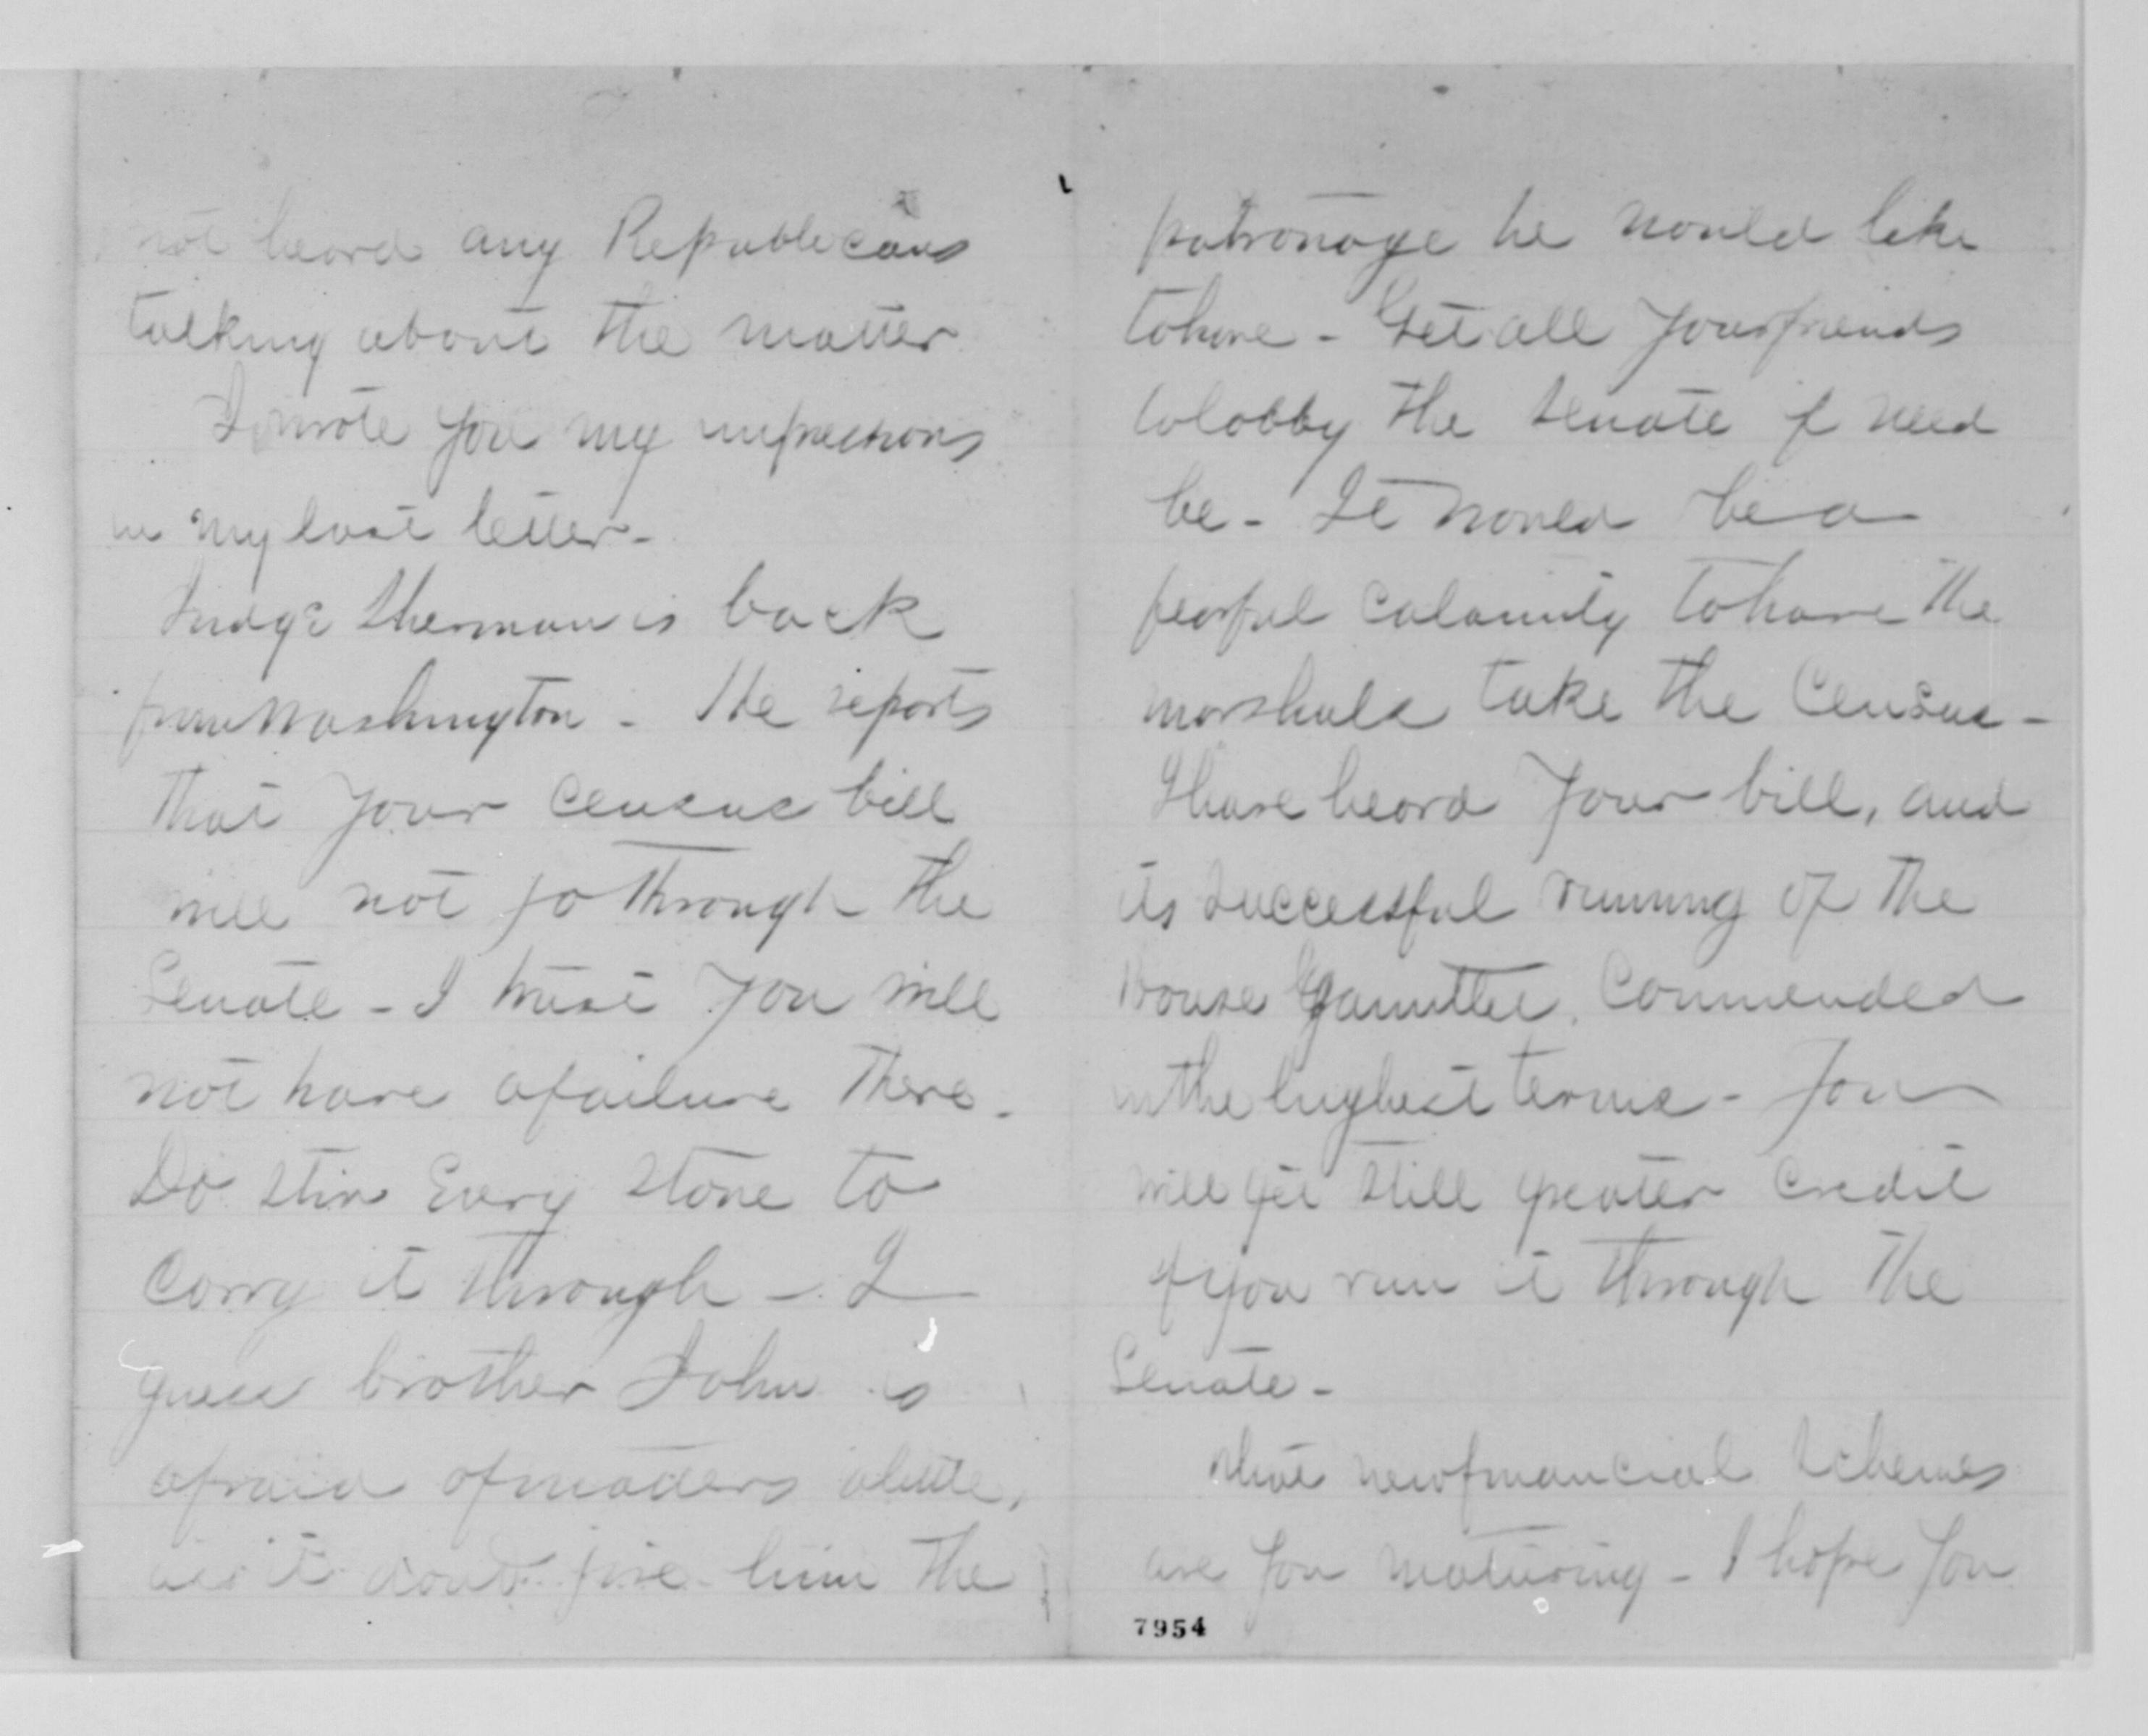 not heard any Republicans
talking about the matter
I wrote you my impressions
in my last letter -
Judge Sherman is back
from Washington - He reports
that your census bill
will not go through the
Senate - I trust you will
not have a failure there.
Do stir Every stone to
carry it through - I
guess brother John is
afraid of matters a little,
as it dont give him the
patronage he would like
to have - Get all your friends
to lobby the Senate if need
be - It would be a
fearful calamity to have the
marshals take the Census -
I have heard your bill, and
its successful running of the
House Gauntlet, Commended
in the highest terms - You
will get still greater credit
if you run it through the
Senate -
What new financial schemes
are you maturing - I hope you
7954